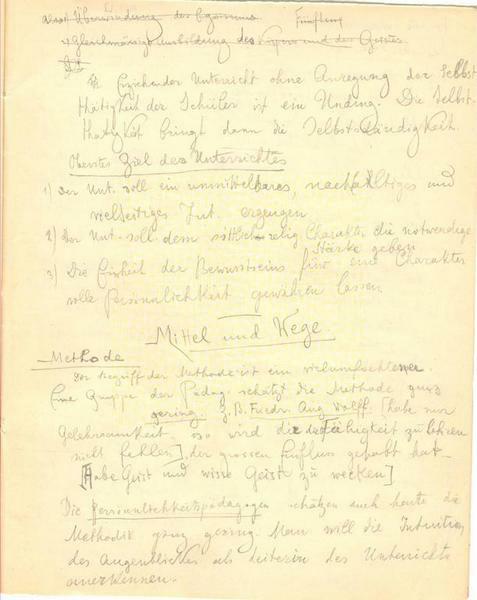 Überwindung des Egoismus
Gleichmässige Ausbildung des Körpers und des Geistes
Erziehender Unterricht ohne Anregung der Selbst
thätigkeit der Schüler ist ein Unding. Die Selbst-
thätigkeit bringt dann die Selbstständigkeit.
Oberstes Ziel des Unterrichtes
1) Der Unt. soll ein unmittelbares, nachhaltiges und
vielseitiges Int. erzeugen
2) Der Unt. soll dem sittlich-relig Charakter die notwendige
Stärke geben
3) Die Einheit des Bewusstseins für eine Charakter
volle Persönlichkeit gewähren lassen
Mittel und Wege.
Methode
Der Begriff der Methode ist ein vielumfochtener
Eine Gruppe der Pädag. schätzt die Methode ganz
gering. Z.B. Friedr. Aug. Wolff. [habe nur
Gelehrsamkeit so wird die Fähigkeit zu lehren
nicht fehlen], der grossen Einfluss gehabt hat
[Habe Geist und wisse Geist zu wecken]
Die Persönlichkeitspädagogen schätzen auch heute die
Methodik ganz gering. Man will die Intuition
des Augenblickes als Leiterin des Unterrichts
anerkennen.